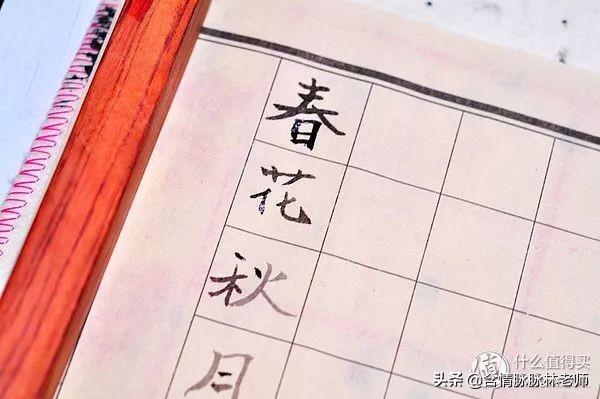 春
花
秋
月
值 什么值得买
头条 @含情脉脉林老师